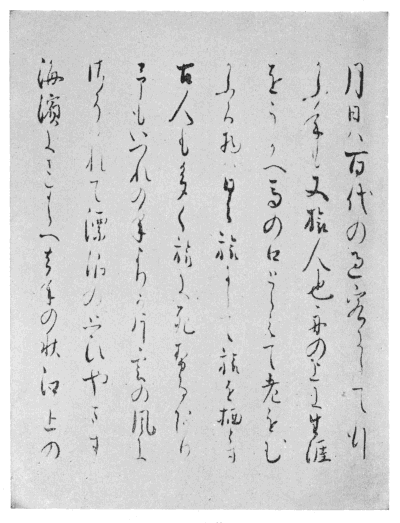 月日は百代の過客にして行
かふ年も又旅人也舟の上に生涯
をうかへ馬の口とらえて老をむ
かふる物は日々旅にして旅を栖とす
古人も多く旅に死せるあり
予もいつれの年よりか片雲の風に
さそはれて漂泊の思ひやます
海濱にさすらへ去年の秋江上の